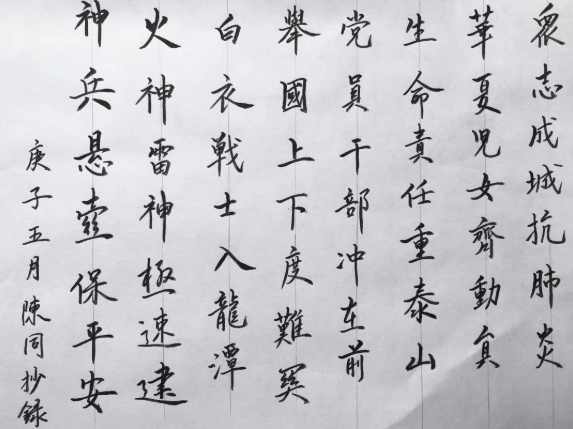 眾志成城抗肺炎
華夏兒女齊動員
生命責任重泰山
党員干部冲在前
舉國上下度難関
白衣戰士入龍潭
火神雷神極速建
神兵懸壺保平安
庚子五月陳同抄錄